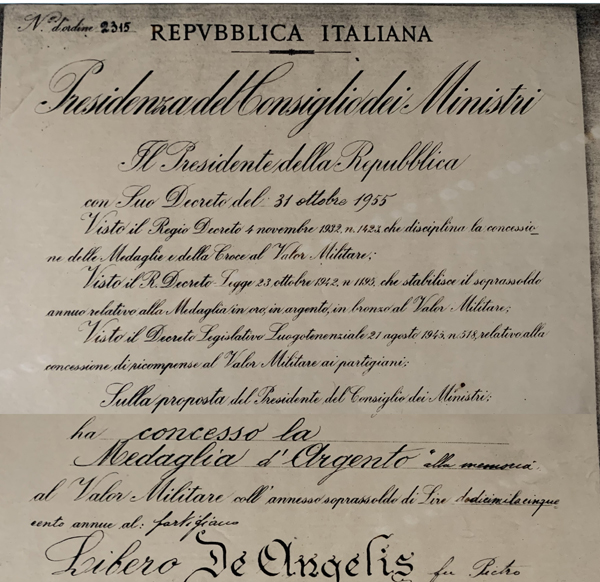 N.º d'ordine 2315
REPVBBLICA ITALIANA
Presidenza del Consiglio dei Ministri
Il Presidente della Repubblica
con Suo Decreto del 31 ottobre 1955
Visto il Regio Decreto 4 novembre 1932, n. 1423, che disciplina la concessio-
ne delle Medaglie e della Croce al Valor Militare;
Visto il R. Decreto Legge 23 ottobre 1942, n. 1195, che stabilisce il soprassoldo
annuo relativo alla Medaglia in oro, in argento, in bronzo al Valor Militare;
Visto il Decreto Legislativo Luogotenenziale 21 agosto 1945, n. 518, relativo alla
concessione di ricompense al Valor Militare ai partigiani;
Sulla proposta del Presidente del Consiglio dei Ministri;
ha concesso la
Medaglia d'Argento "alla memoria"
al Valor Militare coll'annesso soprassoldo di Lire dodicimilacinque
cento annue al: partigiano
Libero De Angelis fu Pietro